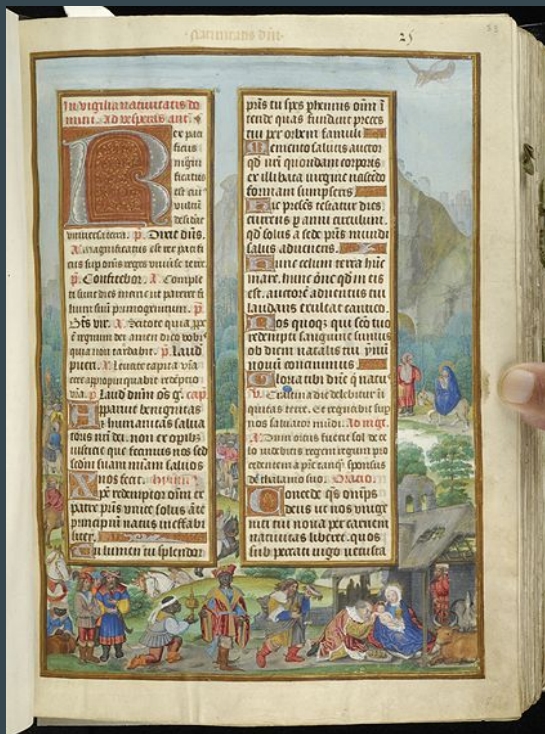 Nativitatis dni.
25
In vigilia nativitatis do
mini. Ad vesperas ant.
Rex paci
ficus
magni
ficatus
est cui9
vultū
desidat
universa terra. p. Dixit dūs.
A. Magnificatus est rex pacifi
cus sup omēs reges universe terre.
p. Confitebor. A. Comple
ti sunt dies marie ut pareret fi
lium suū primogenitum. p.
Bt̄s vir. A. Scitote quia ꝓpe
ē regnum dei amen dico vobis
quia non tardabit. p. Laud
pueri. A. Levate capita vr̄a
ecce appropinquabit redēptio
vr̄a. p. Lauda
Apparuit benignitas
et humanitas salva
toris nr̄i dei. non ex operib9
iusticie que fecimus nos sed
sedm suam mīam salvos
nos fecit.
Xpē redemptor oīm ex
patre pr̄is unice solus āte
principiū natus ineffabi
liter.
Tu lumen tu splendor
pr̄is tu spes phennis oīm ī
tende quas fundunt preces
tui per orbem famuli
Memento salutis auctor
qd nr̄i quondam corporis
ex illibata virgine nascēdo
formam sumpseris
Hic preses testatur dies
currens p anni circulum.
qd solus a sede pr̄is mundi
salus adveneris.
Hunc celum terra hūc
mare. hunc ōne qd in eis
est. auctorē adventus tui
laudans exultat cantico.
Nos quoqz qui sc̄o tuo
redempti sanguine sumus
ob diem natalis tui ymnū
novum concinimus
Gloria tibi dn̄e q natus
V. Crastina die delebitur i
quitas terre. Et regnabit sup
nos salvator mūdi. Ad mgt.
A. Dum ortus fuerit sol de ce
lo videbitis regem regum pro
cedentem a pr̄e tanqz sponsus
de thalamo suo. Oracio.
Concede qs omps
deus ut nos unige
niti tui nova per carnem
nativitas liberet. quos
sub peccati iugo vetusta